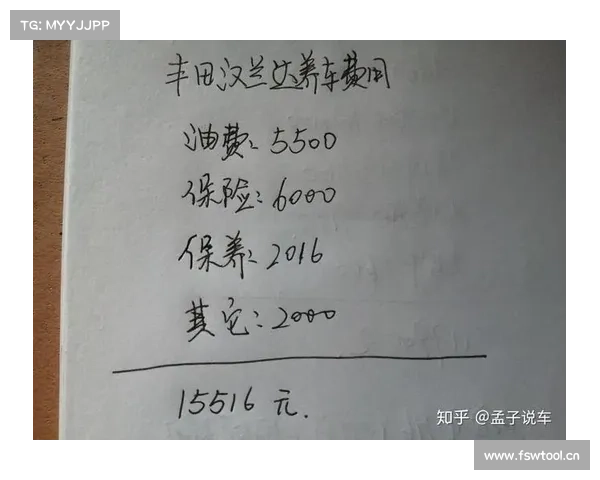 TG: MYYJJPP
丰田汉兰达养车费用
油费：5500
保险：6000
保养：2016
其它：2000
15516 元.
知乎 @孟子说车
www.fswtool.cn